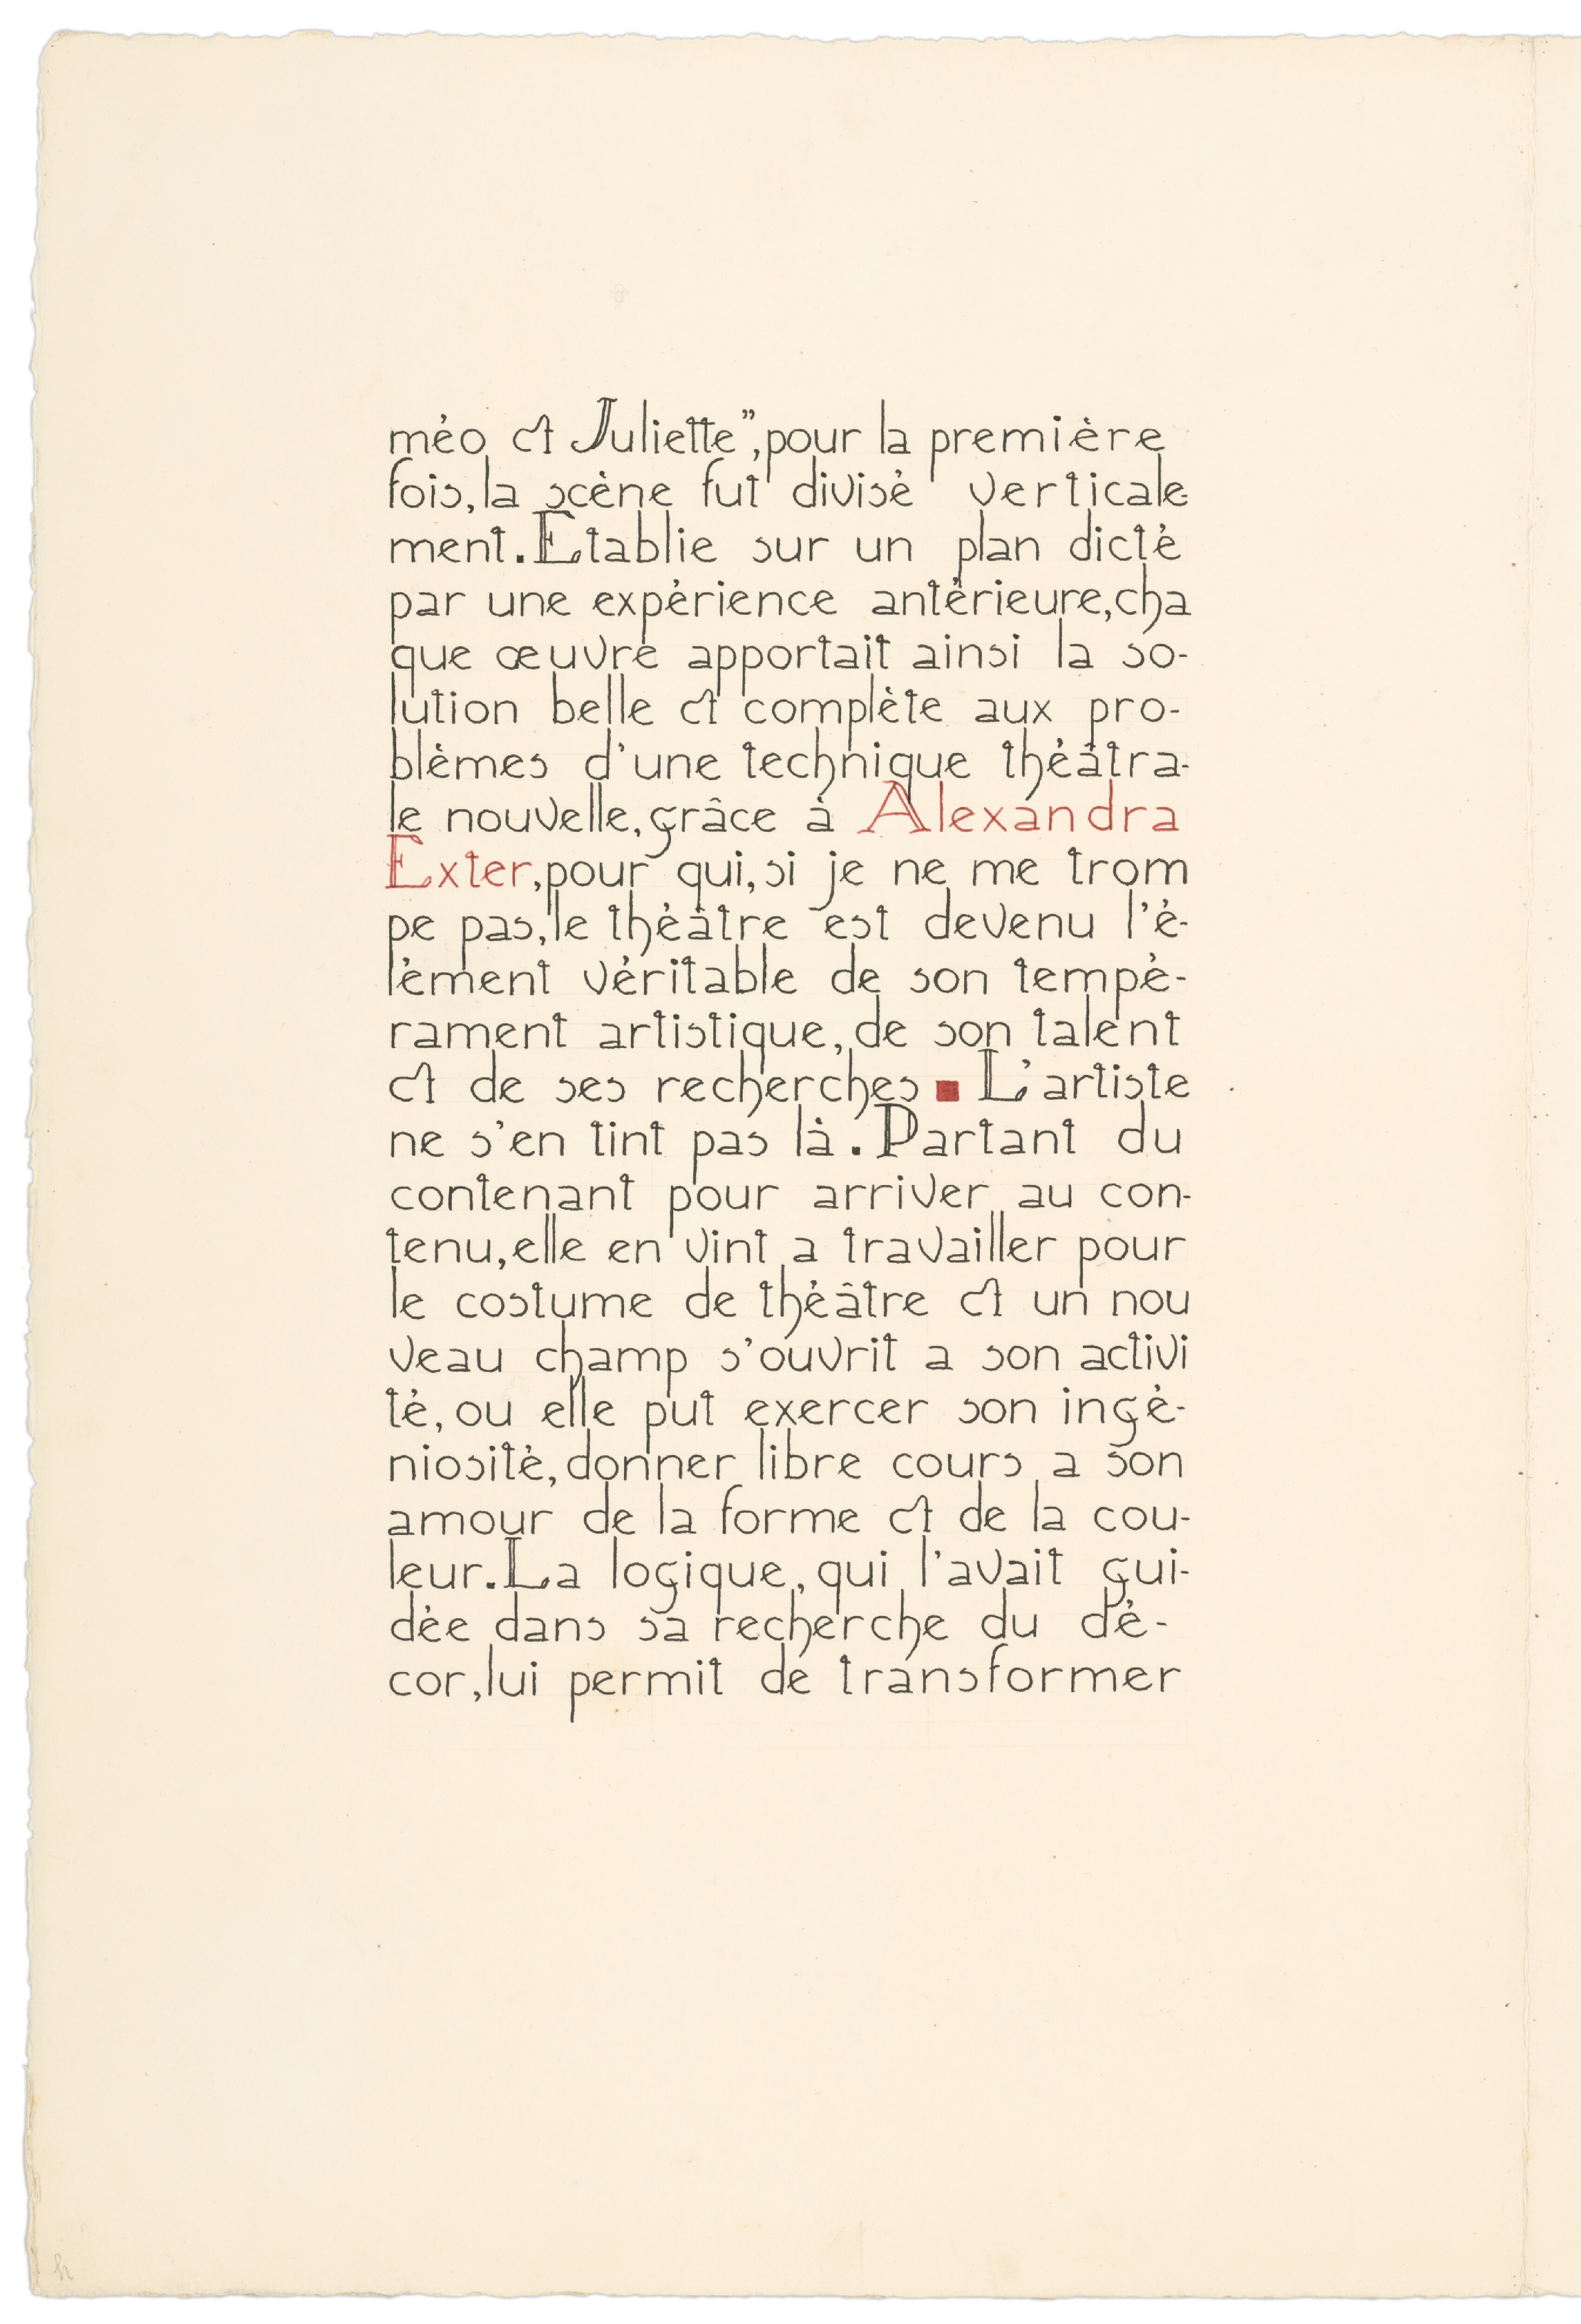 méo et Juliette”, pour la première
fois, la scène fut divisé verticale-
ment. Etablie sur un plan dicté
par une expérience antérieure, cha
que œuvre apportait ainsi la so-
lution belle et complète aux pro-
blèmes d'une technique théâtra-
le nouvelle, grâce à Alexandra
Exter, pour qui, si je ne me trom
pe pas, le théâtre est devenu l'é-
lément véritable de son tempé-
rament artistique, de son talent
et de ses recherches ■ L'artiste
ne s'en tint pas là. Partant du
contenant pour arriver au con-
tenu, elle en vint a travailler pour
le costume de théâtre et un nou
veau champ s'ouvrit a son activi
té, ou elle put exercer son ingé-
niosité, donner libre cours a son
amour de la forme et de la cou-
leur. La logique, qui l'avait gui-
dée dans sa recherche du dé-
cor, lui permit de transformer